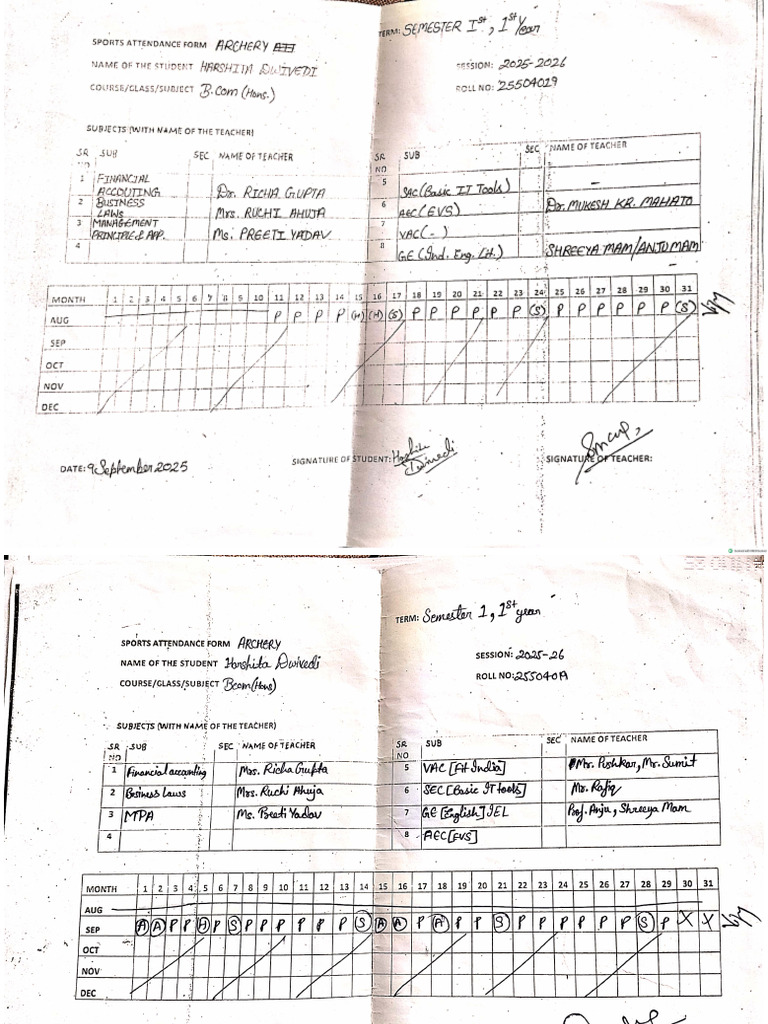 TERM: SEMESTER Ist, 1st Year
SPORTS ATTENDANCE FORM ARCHERY
NAME OF THE STUDENT HARSHITA DWIVEDI
SESSION: 2025-2026
COURSE/CLASS/SUBJECT B.Com (Hons.)
ROLL NO: 25504019
SUBJECTS (WITH NAME OF THE TEACHER)
SR NO SUB SEC NAME OF TEACHER SR NO SUB SEC NAME OF TEACHER
1 FINANCIAL ACCOUTING Dr. RICHA GUPTA 5 SAC (Basic IT Tools) -
2 BUSINESS LAWS Mrs. RUCHI AHUJA 6 AEC (EVS) Dr. MUKESH KR. MAHATO
3 MANAGEMENT PRINCIPLE & APP. Ms. PREETI YADAV 7 VAC (-)
4 8 GE (Ind. Eng. Lit.) SHREEYA MAM/ANJU MAM
MONTH 1 2 3 4 5 6 7 8 9 10 11 12 13 14 15 16 17 18 19 20 21 22 23 24 25 26 27 28 29 30 31
AUG P P P P (H) (H) (S) P P P P P P (S) P P P P P P (S)
SEP
OCT
NOV
DEC
DATE: 9 September 2025
SIGNATURE OF STUDENT: Harshita Dwivedi
SIGNATURE OF TEACHER:
TERM: Semester 1, 1st year
SPORTS ATTENDANCE FORM ARCHERY
NAME OF THE STUDENT Harshita Dwivedi
SESSION: 2025-26
COURSE/CLASS/SUBJECT Bcom (Hons)
ROLL NO: 25504019
SUBJECTS (WITH NAME OF THE TEACHER)
SR NO SUB SEC NAME OF TEACHER SR NO SUB SEC NAME OF TEACHER
1 Financial accounting Mrs. Richa Gupta 5 VAC [Art India] Mr. Pushkar, Mr. Sumit
2 Business Laws Mrs. Ruchi Ahuja 6 SEC [Basic IT tools] Mr. Rafiq
3 MPA Ms. Preeti Yadav 7 GE [English] IEL Prof. Anju, Shreeya Mam
4 8 AEC [EVS]
MONTH 1 2 3 4 5 6 7 8 9 10 11 12 13 14 15 16 17 18 19 20 21 22 23 24 25 26 27 28 29 30 31
AUG
SEP A A P P H P S P P P P P P S A A P A P P S P P P P P P S P X X
OCT
NOV
DEC